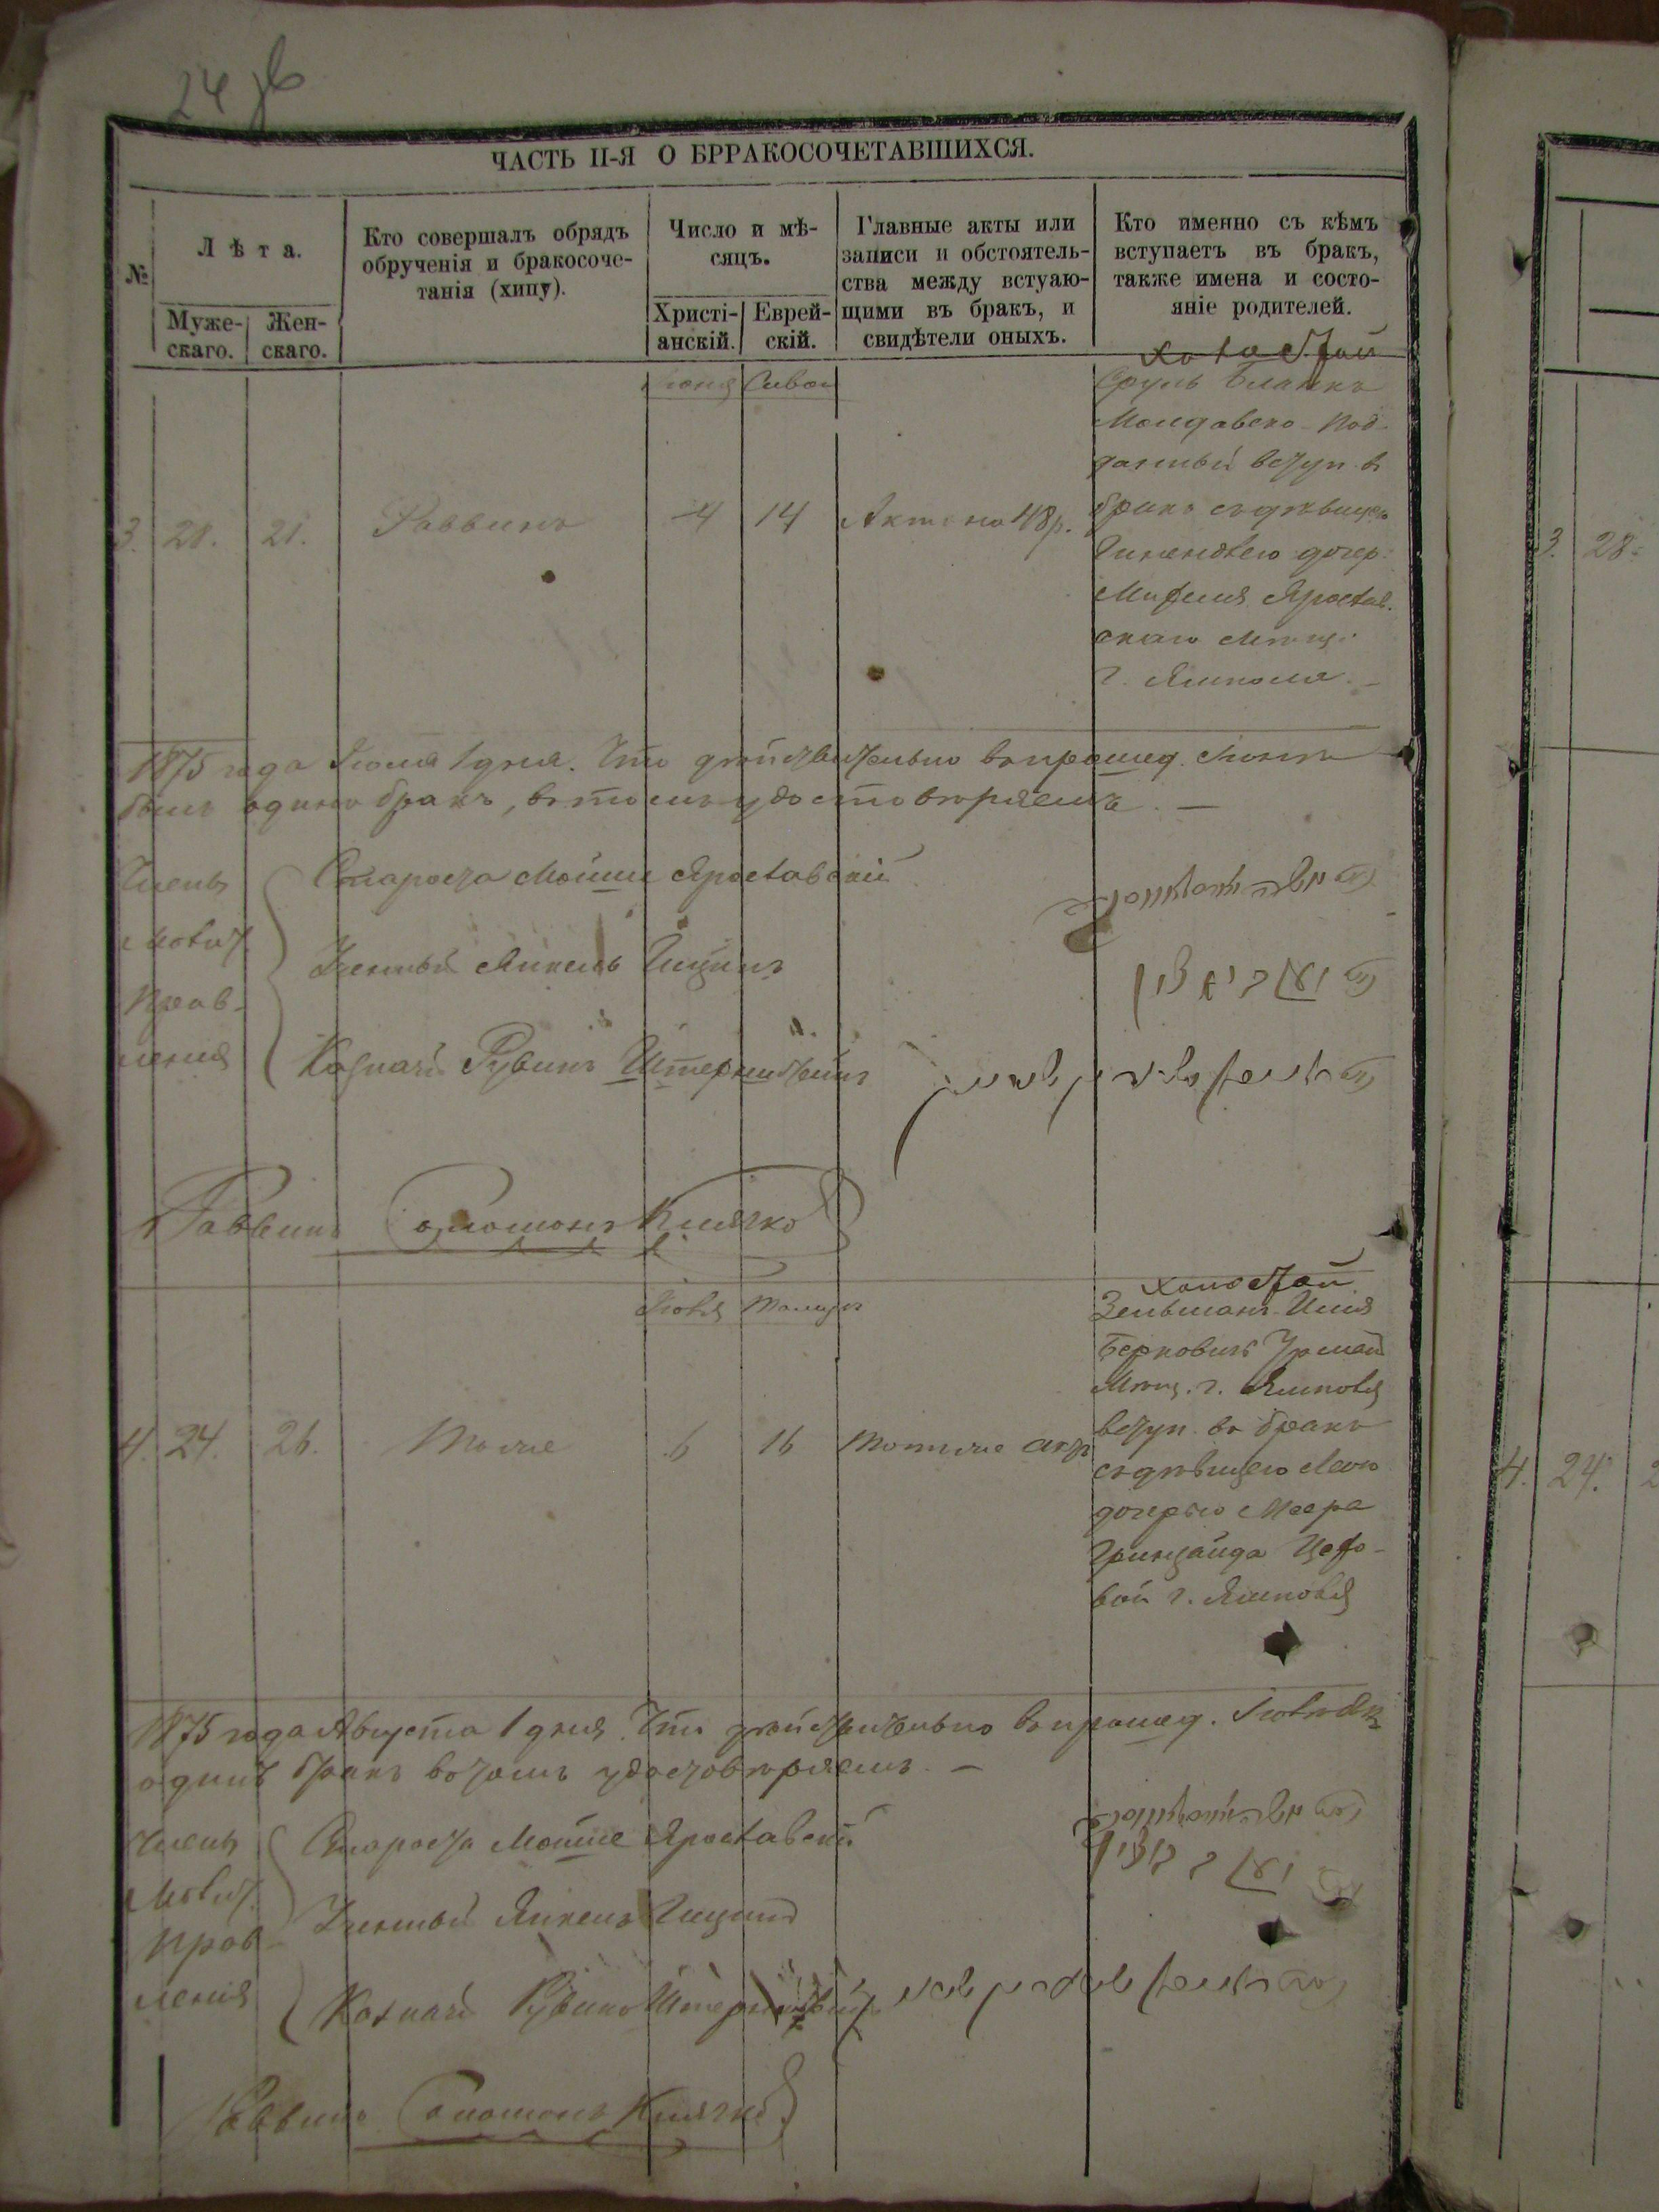 ЧАСТЬ II-Я О БРРАКОСОЧЕТАВШИХСЯ.
№
Лѣта.
Муже-
скаго.
Жен-
скаго.
Кто совершалъ обрядъ
обрученія и бракосоче-
танія (хипу).
Число и мѣ-
сяцъ.
Христі-
анскій.
Еврей-
скій.
Главные акты или
записи и обстоятель-
ства между встуаю-
щими въ бракъ, и
свидѣтели оныхъ.
Кто именно съ кѣмъ
вступаетъ въ бракъ,
также имена и состо-
яніе родителей.
Іюня Сиван
3. 28. 21. Раввинъ 4 14 Актъ на 48 р.
холостой
Сруль Бланкъ
Молдавско под-
данный вступ. въ
бракъ съ дѣвицею
дочер.
Ярослав.
скаго Мѣщ.
г. Ямполя. —
1875 года Іюля 1 дня. Что дѣйствительно въ прошед. Іюнѣ
былъ одинъ бракъ, въ томъ удостовѣряемъ. —
Члены
Молит.
Прав-
ленія
Староста Мойше Ярославскій
Ученый Янкель Гицинъ
Казначей Рувинъ Штернштейнъ
Раввинъ Соломонъ Клячко
Іюля Тамузъ
4. 24. 26. Тоже 6 16 Таковые актъ
холостой
Зельманъ-Шия
Берковичъ Урман
Мѣщ. г. Ямполя
вступ. въ бракъ
съ дѣвицею Леею
дочерью Меера
Гринцайда Цехо-
вой г. Ямполя
1875 года Августа 1 дня. Что дѣйствительно въ прошед. Іюлѣ былъ
одинъ бракъ въ томъ удостовѣряемъ. —
Члены
Молит.
Прав-
ленія
Староста Мойше Ярославскій
Ученый Янкель Гицинъ
Казначей Рувинъ Штернштейнъ
Раввинъ Соломонъ Клячко
3. 28.
4. 24.